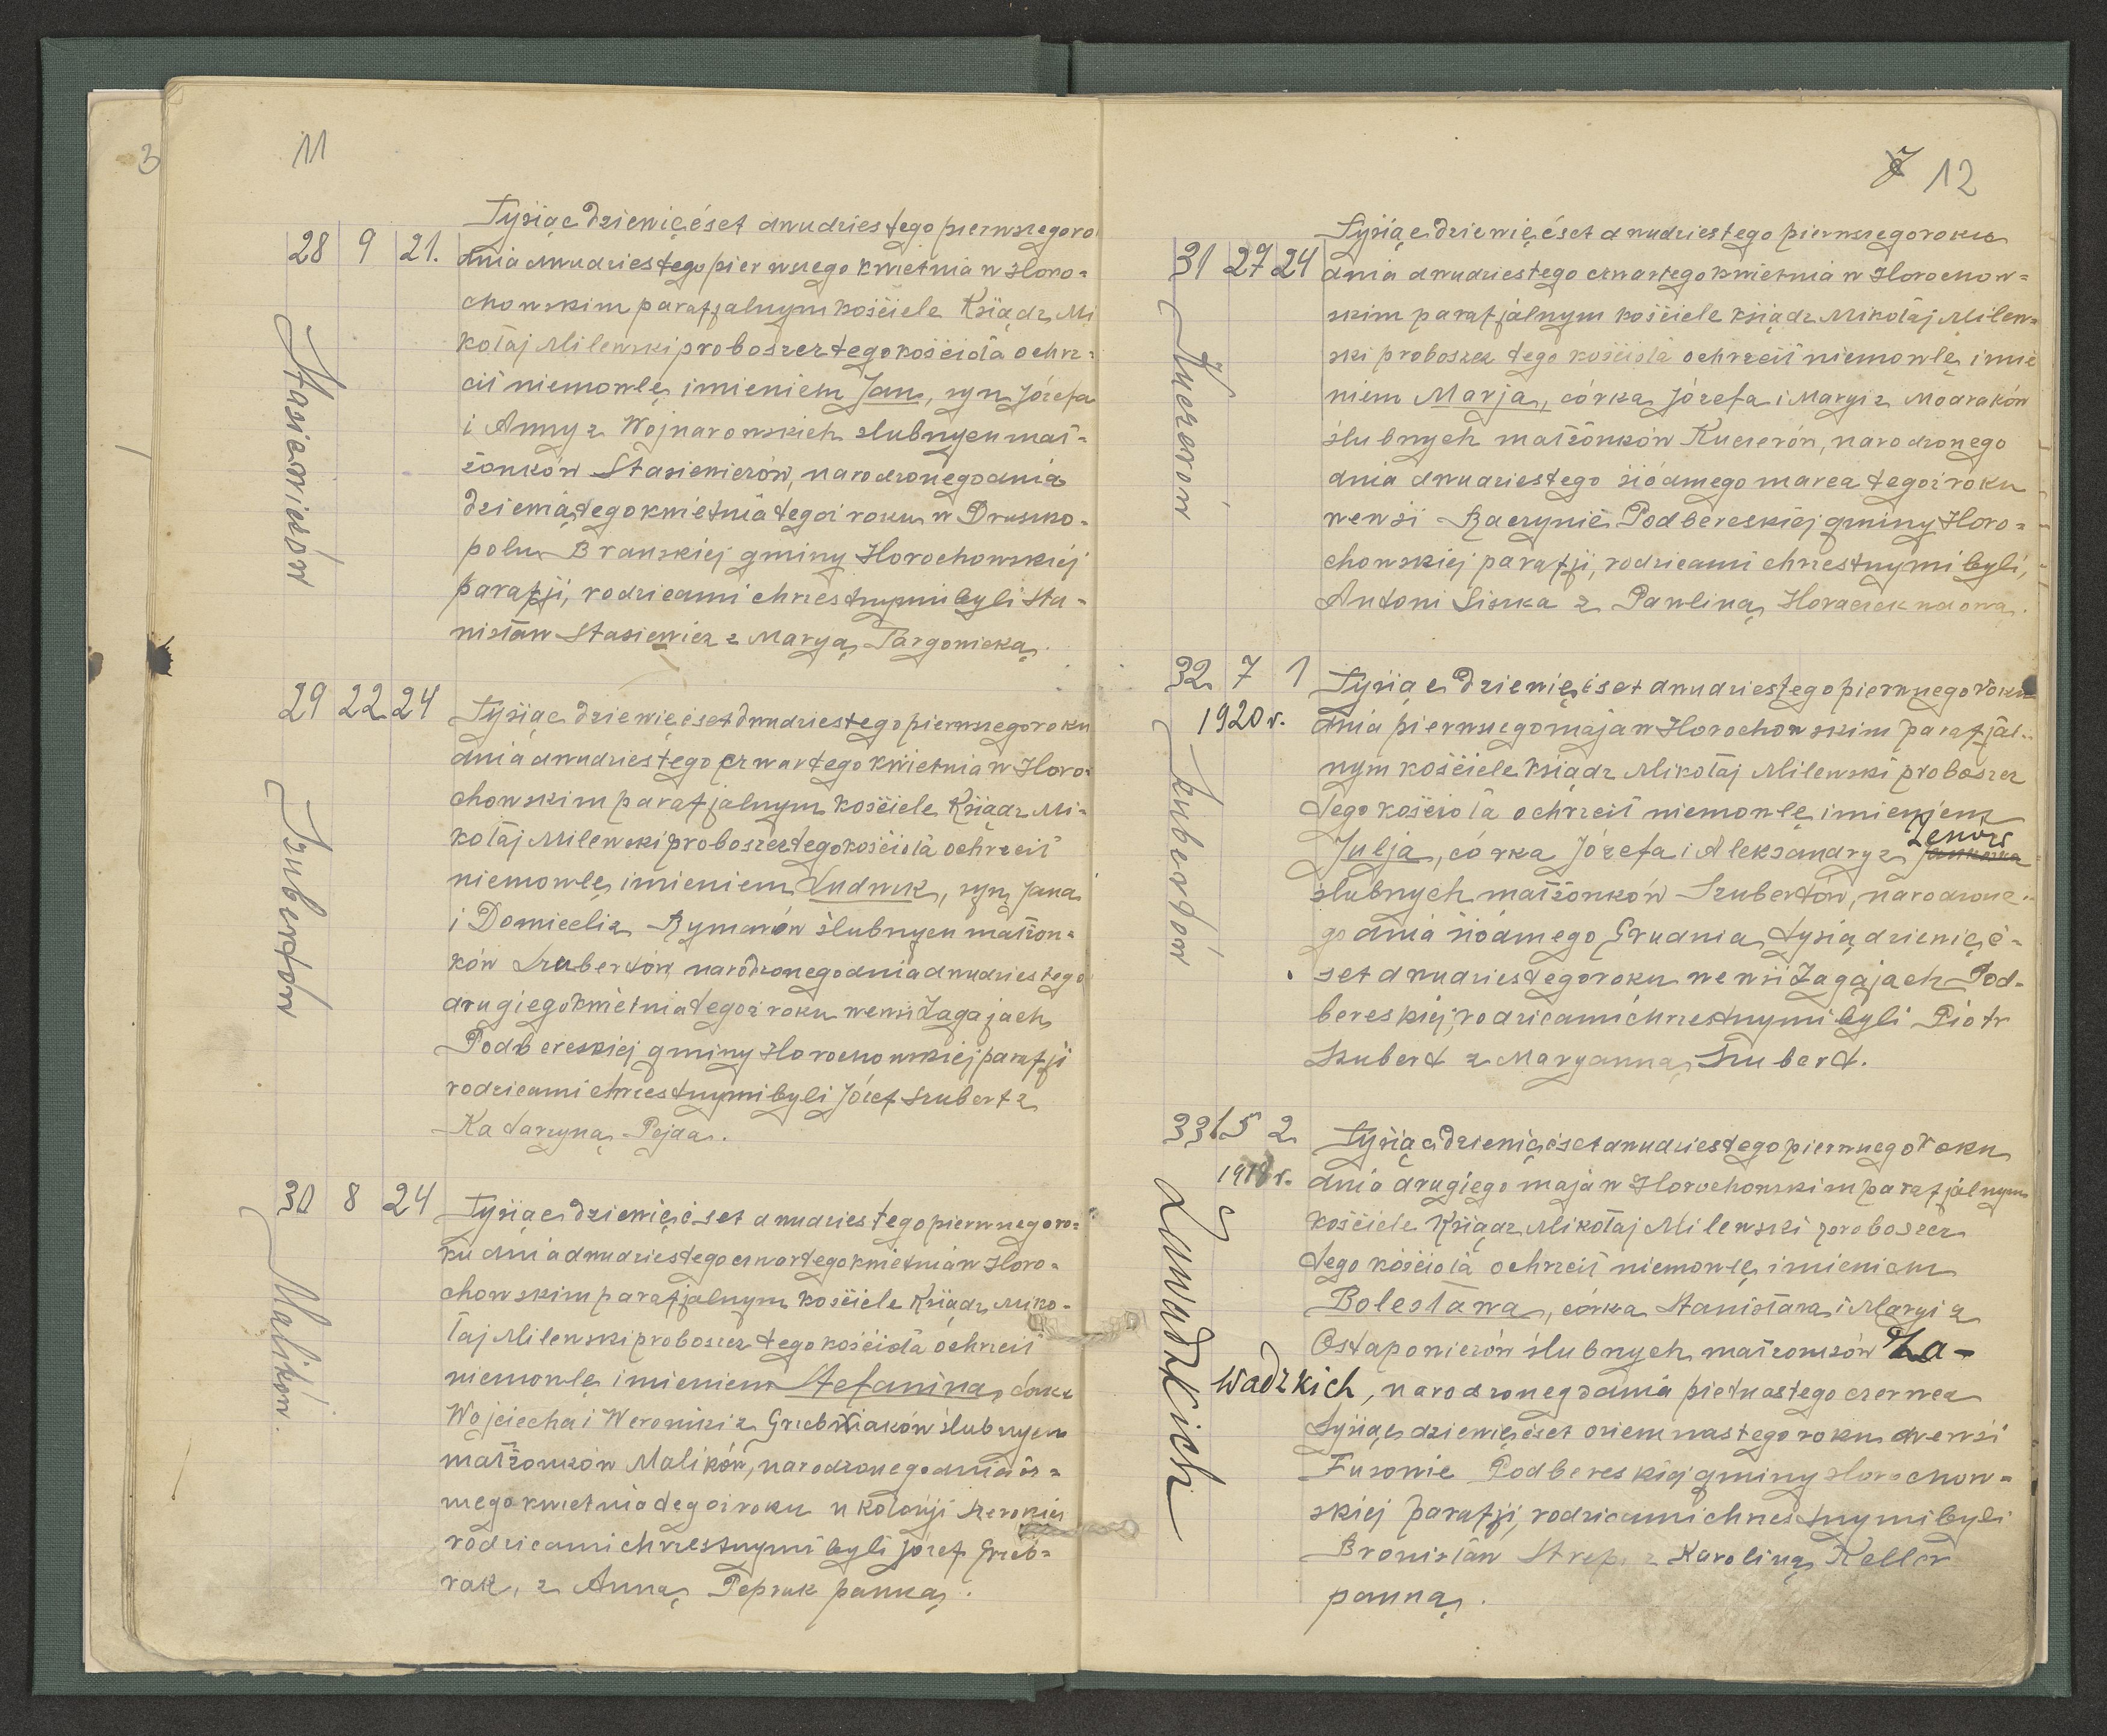 3
11
Tysiąc dziewięćset dwudziestego pierwszego ro
28 9 21. dnia dwudziestego pierwszego kwietnia w Horo=
chowskim parafjalnym kościele Ksiądz Mi
kołaj Milewski proboszcz tego kościoła ochrz=
cił niemowlę imieniem Jan, syn Józefa
i Anny z Wojnarowskich slubnych mał=
żonków Stasiewiczów, narodzonego dnia
dziewiątego kwietnia tegoż roku w Druszko=
polu Brańskiej gminy Horochowskiej
parafji, rodzicami chrzestnymi byli Sta=
nisław Stasiewicz z Maryą Targonicką.
Stasiewiczów
29 22 24 Tysiąc dziewięćset dwudziestego pierwszego roku
dnia dwudziestego czwartego kwietnia w Horo=
chowskim parafjalnym kościele Ksiądz Mi=
kołaj Milewski proboszcz tego kościoła ochrzcił
niemowlę imieniem Ludwik, syn Jana
i Domiceli z Rymarów ślubnych małżon=
ków Szubertów, narodzonego dnia dwudziestego
drugiego kwietnia tegoż roku we wsi Zagajach
Podbereskiej gminy Horochowskiej parafji
rodzicami chrzestnymi byli Józef Szubert z
Katarzyną Pejda.
Szubertów
30 8 24 Tysiąc dziewięćset dwudziestego pierwszego ro=
ku dnia dwudziestego czwartego kwietnia w Horo=
chowskim parafjalnym kościele Ksiądz Miko=
łaj Milewski proboszcz tego kościoła ochrzcił
niemowlę imieniem Stefanina, córka
Wojciecha i Weroniki z Grzebniaków ślubnych
małżonków Malików, narodzonego dnia ós=
mego kwietnia tegoż roku w kolonji Szerokiej
rodzicami chrzestnymi byli Józef Grzeb=
rak, z Anną Pepruk panną.
Malików.
7 12
Tysiąc dziewięćset dwudziestego pierwszego roku
31 27 24 dnia dwudziestego czwartego kwietnia w Horochow=
skim parafjalnym kościele ksiądz Mikołaj Milew=
ski proboszcz tego kościoła ochrzcił niemowlę imie
niem Marja, córka Józefa i Maryi z Modraków
ślubnych małżonków Kucerów, narodzonego
dnia dwudziestego siódmego marca tegoż roku
we wsi Raczynie Podbereskiej gminy Horo=
chowskiej parafji, rodzicami chrzestnymi byli,
Antoni Siszka z Pauliną Horaczek wdową.
Kucerów
32 7 1 Tysiąc dziewięćset dwudziestego pierwszego roku
1920 r. dnia pierwszego maja w Horochowskim parafjal=
nym kościele ksiądz Mikołaj Milewski proboszcz
tego kościoła ochrzcił niemowlę imieniem
Zenors
Julja, córka Józefa i Aleksandry z
slubnych małżonków Szubertów, narodzone=
go dnia siódmego Grudnia tysiądziewięć=
set dwudziestego roku we wsi Zagajach Pod=
bereskiej, rodzicami chrzestnymi byli Piotr
Szubert z Maryanną Szubert.
Szubertów
33 15 2 Tysiąc dziewięćset dwudziestego pierwszego roku
1918 r. dnia drugiego maja w Horochowskim parafjalnym
kościele Ksiądz Mikołaj Milewski proboszcz
tego kościoła ochrzcił niemowlę imieniem
Bolesława, córka Stanisława i Maryi z
Ostapowiczów ślubnych małżonków Za-
wadzkich, narodzonego dnia pietnastego czerwca
Tysiąc dziewięćset osiemnastego roku we wsi
Zusowie Podbereskiej gminy Horochow=
skiej parafji, rodzicami chrzestnymi byli
Bronisław z Karoliną Keller
panną.
Zawadzkich